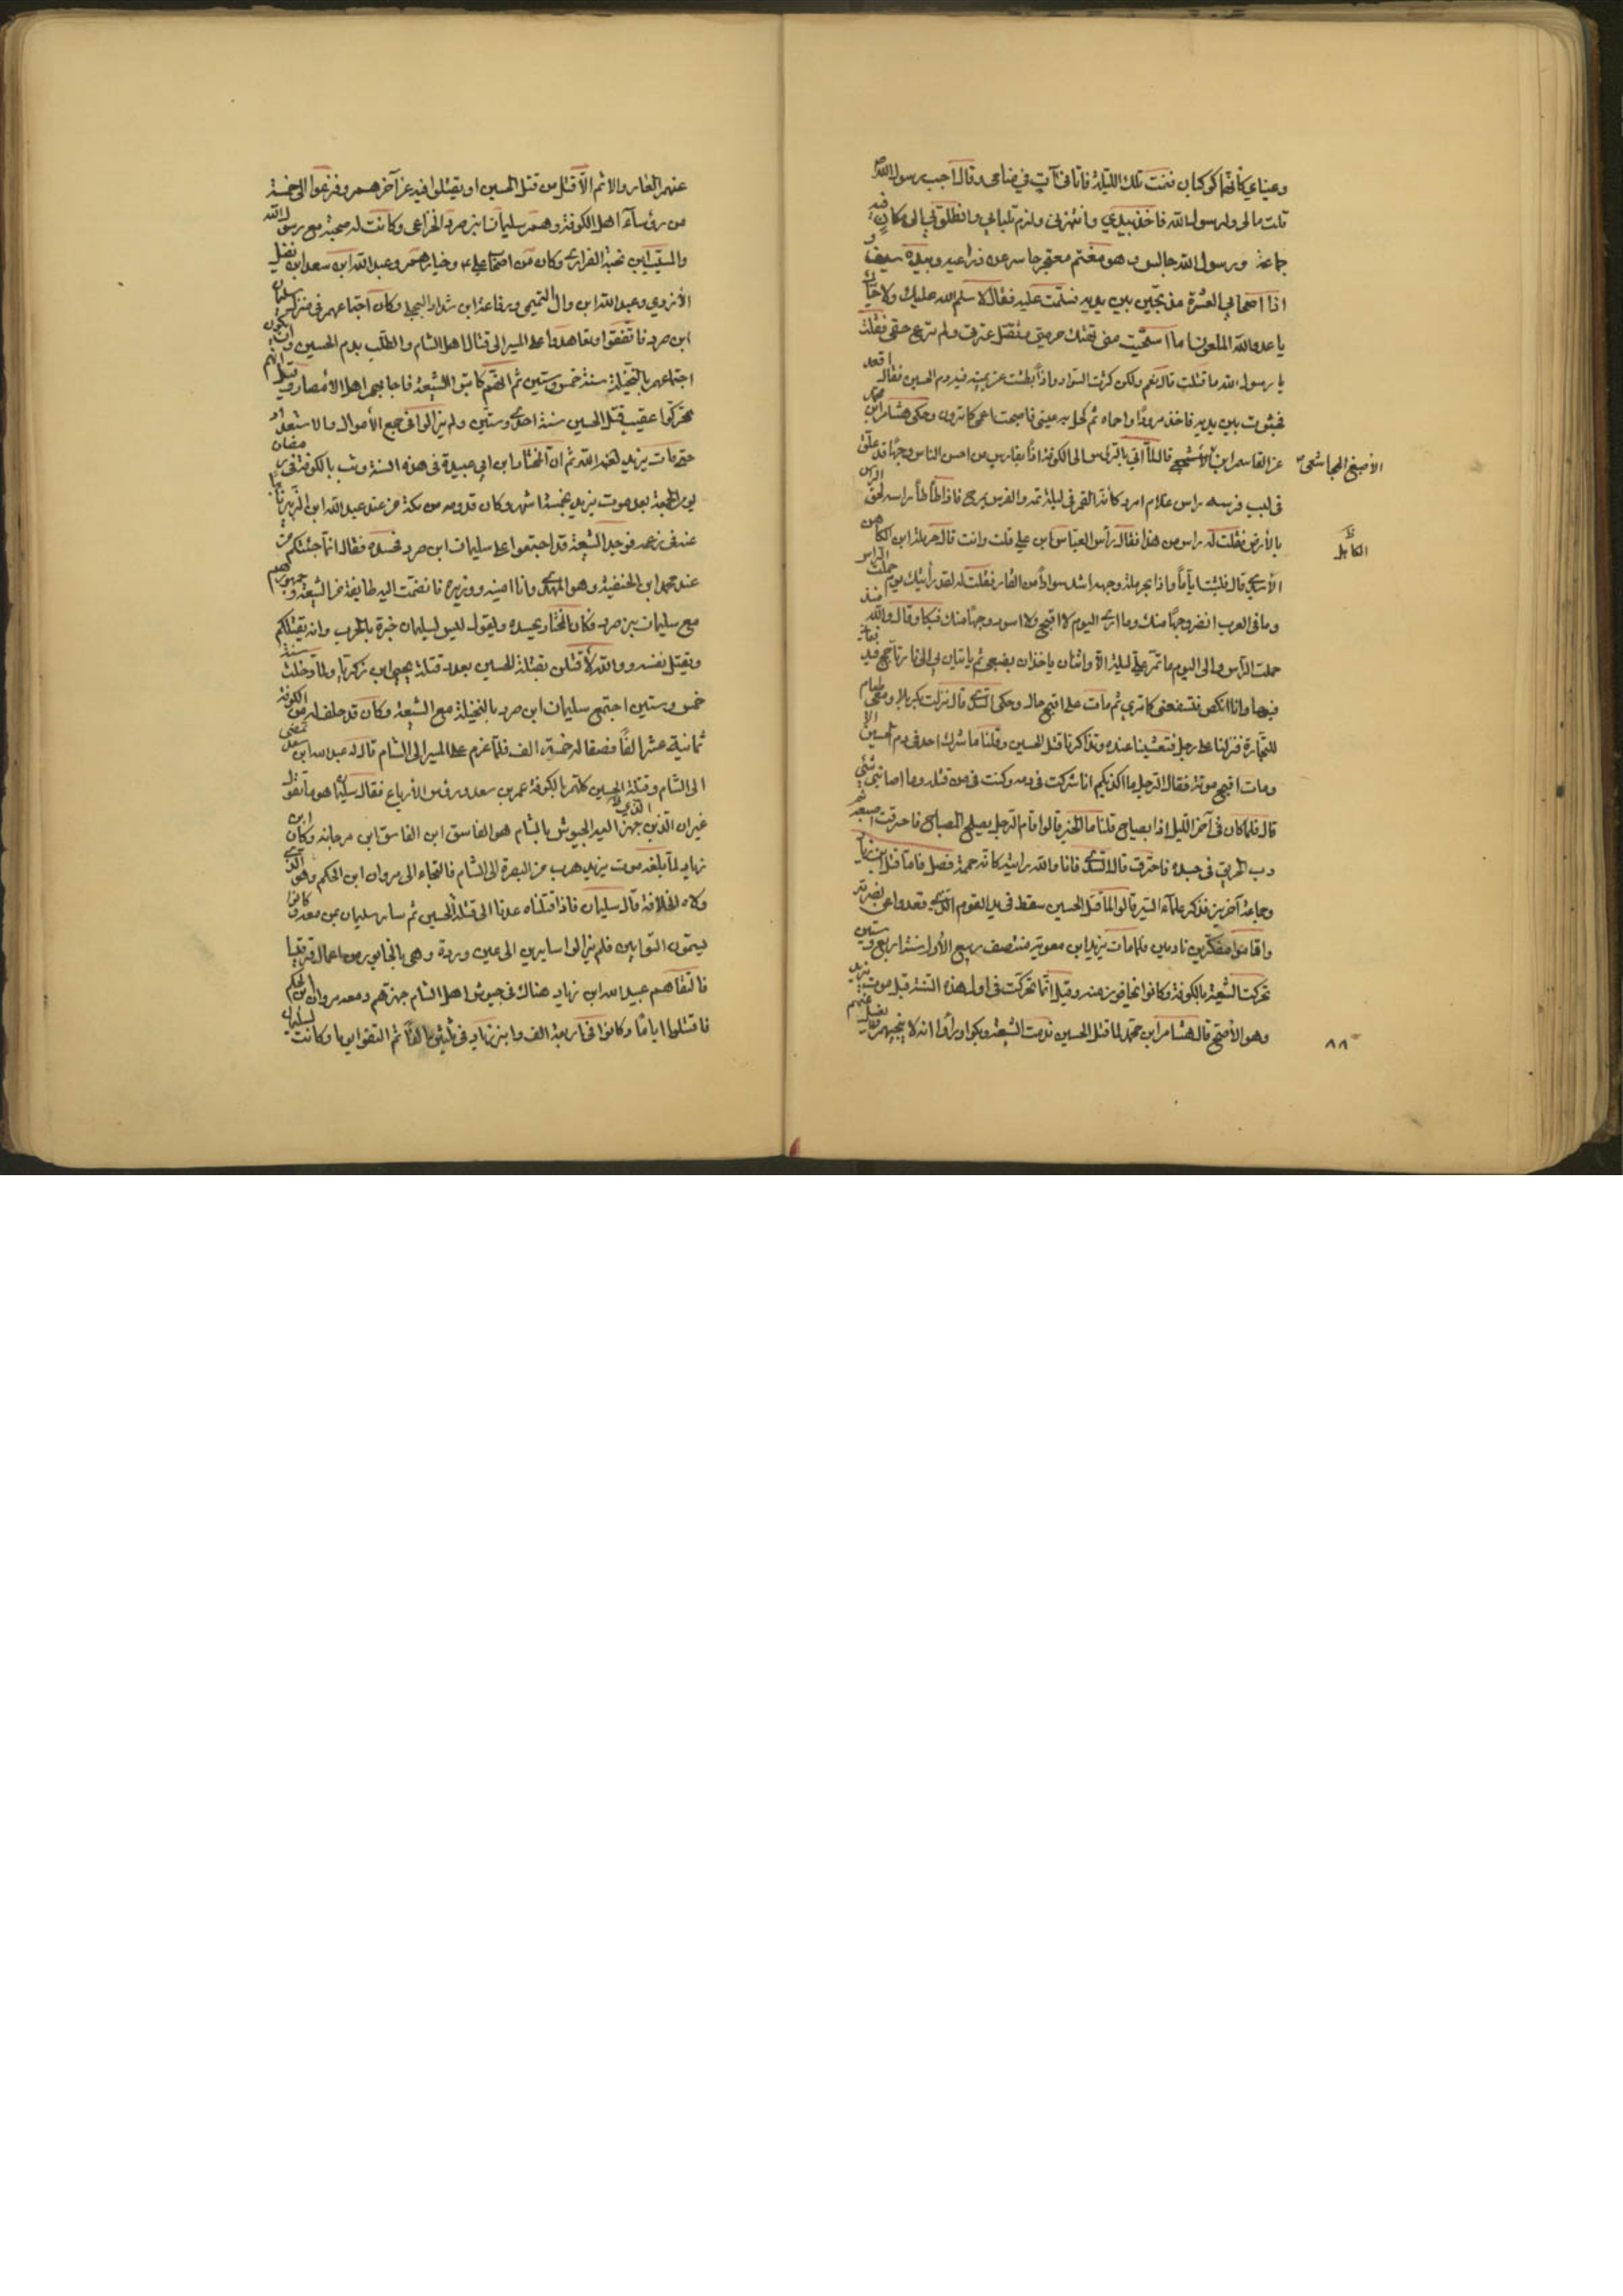 وعيناي كأنهما كوكبان فنمت تلك الليلة فاتاني آتٍ في منامي وقال اجب رسول الله ص
قلت مالي ولرسول الله فاخذ بيدي وانتهرني ولزم تلبابي وانطلق بي الى مكان فيه
جماعة ورسول الله جالس وهو مغتم معتجر حاسر عن ذراعيه وبيده سيف و
اذا اصحابي العشرة مذبحين بين يديه فسلمت عليه فقال لا سلم الله عليك ولا حياك
يا عدو الله الملعون اما استحيت مني تهتك حرمتي وتقتل عترتي ولم ترع حقي فقلت
يا رسول الله ما قتلت قال نعم ولكن كثرت السواد واذا بطشت عن يمينه فيه دم الحسين فقال اقعد
فجثوت بين يديه فاخذ مرودا واحماه ثم كحل به عيني فاصبحت اعمى كما ترون وحكى هشام ابن محمد
عن القاسم ابن الأصبغ المجاشعي قال لما أتي بالرؤس الى الكوفة اذا بفارس من احسن الناس وجها قد علق
في لبب فرسه راس غلام امرد كأنه القمر في ليلة تمه والفرس يمرح فاذا طأطأ راسه لحق الراس
بالأرض فقلت له راس من هذا فقال رأس العباس ابن علي قلت وانت قال حرملة ابن الكاهن
الكاهل
الأسدي قال فلبثت اياماً واذا بحرملة وجهه اشد سواداً من القار فقلت له لقد رأيتك يوم حملت الراس
وما في العرب انضر وجهاً منك وما ارى اليوم لا اقبح ولا اسود وجهاً منك فبكا وقال والله منذ
حملت الرأس والى اليوم ما تمر علي ليلة الا واثنان ياخذان بضبعي ثم ياتيان بي الى نار تاجج فيدفعاني
فيها وانا انكص فتسفعني كما ترى ثم مات على اقبح حال وحكى السدي قال نزلت بكربلا ومعي طعام
للتجارة فنزلنا على رجل فتعشينا عنده وتذاكرنا قتل الحسين وقلنا ما شرك احد في دم الحسين الا
ومات اقبح موتة فقال الرجل ما اكذبكم انا شركت في دمه وكنت في من قتله وما اصابني شئي
قال فلما كان في آخر الليل اذا بصياح قلنا ما الخبر قالوا قام الرجل يصلح المصباح فاحرقت اصبعه ثم
دب الحريق في جسده فاحترق قال السدي فانا والله رايته كانه حممة فصل فاما قتل ابن زياد
وجماعة آخرين فذكر علماء السير قالوا لما قتل الحسين سقط في يد القوم الذي وقعدوا عن نصرته
واقاموا متفكرين نادمين فلما مات يزيد ابن معوية منتصف ربيع الأول سنة اربع وستين
تحركت الشيعة بالكوفة وكانوا يخافون منه وقيل انما تحركت في اول هذه السنة قبل موت يزيد
وهو الأصح قال هشام ابن محمد لما قتل الحسين ندمت الشيعة وبكوا ورأوا انه لا ينجيهم ولا يغسل عنهم
٨٨
عنهم العار والاثم الا قتل من قتل الحسين او يقتلوا فيه عن آخرهم وفزعوا الى خمسة
من رؤساء اهل الكوفة وهم سليمان ابن صرد الخزاعي وكانت له صحبة مع رسول الله
والمسيب ابن نجبة الفزاري وكان من اصحاب علي ع وخيارهم وعبد الله ابن سعد ابن نفيل
الأزدي وعبد الله ابن وال التميمي ورفاعة ابن شداد البجلي وكان اجتماعهم في منزل سليمان
ابن صرد فاتفقوا وتعاهدوا على المسير الى قتال اهل الشام والطلب بدم الحسين وان يكون
اجتماعهم بالنخيلة سنة خمس وستين ثم انهم كاتبوا الشيعة فاجابهم اهل الأمصار وقيل انهم
تحركوا عقيب قتل الحسين سنة احدى وستين ولم يزالوا في جمع الأموال والاستعداد
حتى مات يزيد لعنه الله ثم ان المختار ابن ابي عبيدة في هذه السنة وثب بالكوفة في رمضان
يوم الجمعة بعد موت يزيد بخمسة اشهر وكان قدومه من مكة من عند عبد الله ابن الزبير
عنه في زعمه فوجد الشيعة قد اجتمعوا على سليمان ابن صرد فحسده فقال انما جئتكم من
عند محمد ابن الحنفية وهو المهدي وانا امينه ووزيره فانضمت اليه طايفة من الشيعة وجمهورهم
مع سليمان بن صرد فكان المختار يحسده ويقول ليس لسليمان خبرة بالحرب وانه يقتلكم
ويقتل نفسه ووالله لأقتلن بقتلة الحسين بعدد قتلة يحيى ابن زكريا ولما دخلت سنة
خمس وستين اجتمع سليمان ابن صرد بالنخيلة مع الشيعة وكان قد حلف له من الكوفة
ثمانية عشر الفاً فصفا له خمسة الف فلما عزم على المسير الى الشام قال له عبد الله ابن سعد تمضي
الى الشام وقتلة الحسين كلهم بالكوفة عمر بن سعد ورؤس الأرباع فقال سليمان هو ما تقول
غير ان الذي جهز اليه الجيوش بالشام هو الفاسق ابن الفاسق ابن مرجانة وكان ابن
زياد لما بلغه موت يزيد هرب من البصرة الى الشام فالتجاء الى مروان ابن الحكم وهو الذي
ولاه الخلافة قال سليمان فاذا قتلناه عدنا الى قتلة الحسين ثم سار سليمان بمن معه وكانوا
يسمون التوابين فلم يزالوا سايرين الى عين وردة وهي بالخابور من اعمال قرقيسا
فالتقاهم عبيد الله ابن زياد هناك في جيوش اهل الشام جهزهم ومعه مروان ابن الحكم
فاقتتلوا اياماً وكانوا في اربعة الف وابن زياد في ثلثين الفاً ثم التقوا يوما وكانت لسليمان